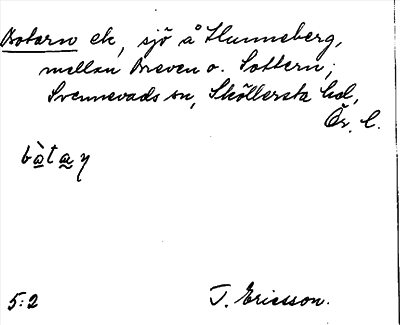 Botarn ek, sjö å Hunneberg,
mellan Breven o. Sottern;
Svennevads sn, Sköllersta hd,
Ör. l.
bòtaŋ
5:2 T. Ericsson.